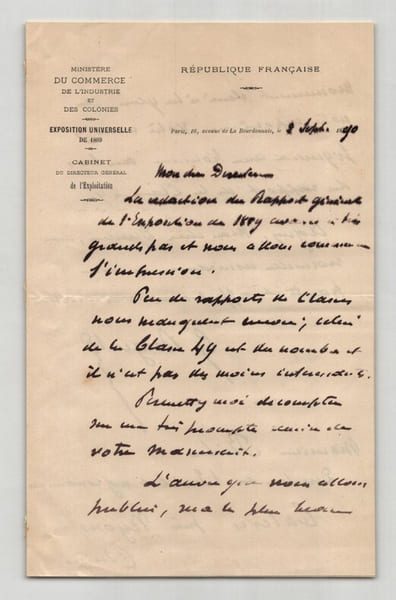 MINISTÈRE
DU COMMERCE
DE L'INDUSTRIE
ET
DES COLONIES
EXPOSITION UNIVERSELLE
DE 1889
CABINET
DU DIRECTEUR GÉNÉRAL
de l'Exploitation
RÉPUBLIQUE FRANÇAISE
Paris, 16, avenue de La Bourdonnais, le 2 Sepbre 1890
Mon cher Directeur
La rédaction du Rapport général
de l'Exposition de 1889 avance à très
grands pas et nous allons commencer
l'impression.
Peu de rapports de Classes
nous manquent encore ; celui
de la Classe 49 est du nombre et
il n'est pas des moins intéressants.
Permettez moi de compter
sur un très prompt envoi de
votre manuscrit.
L'œuvre que nous allons
publier, sera le plus beau